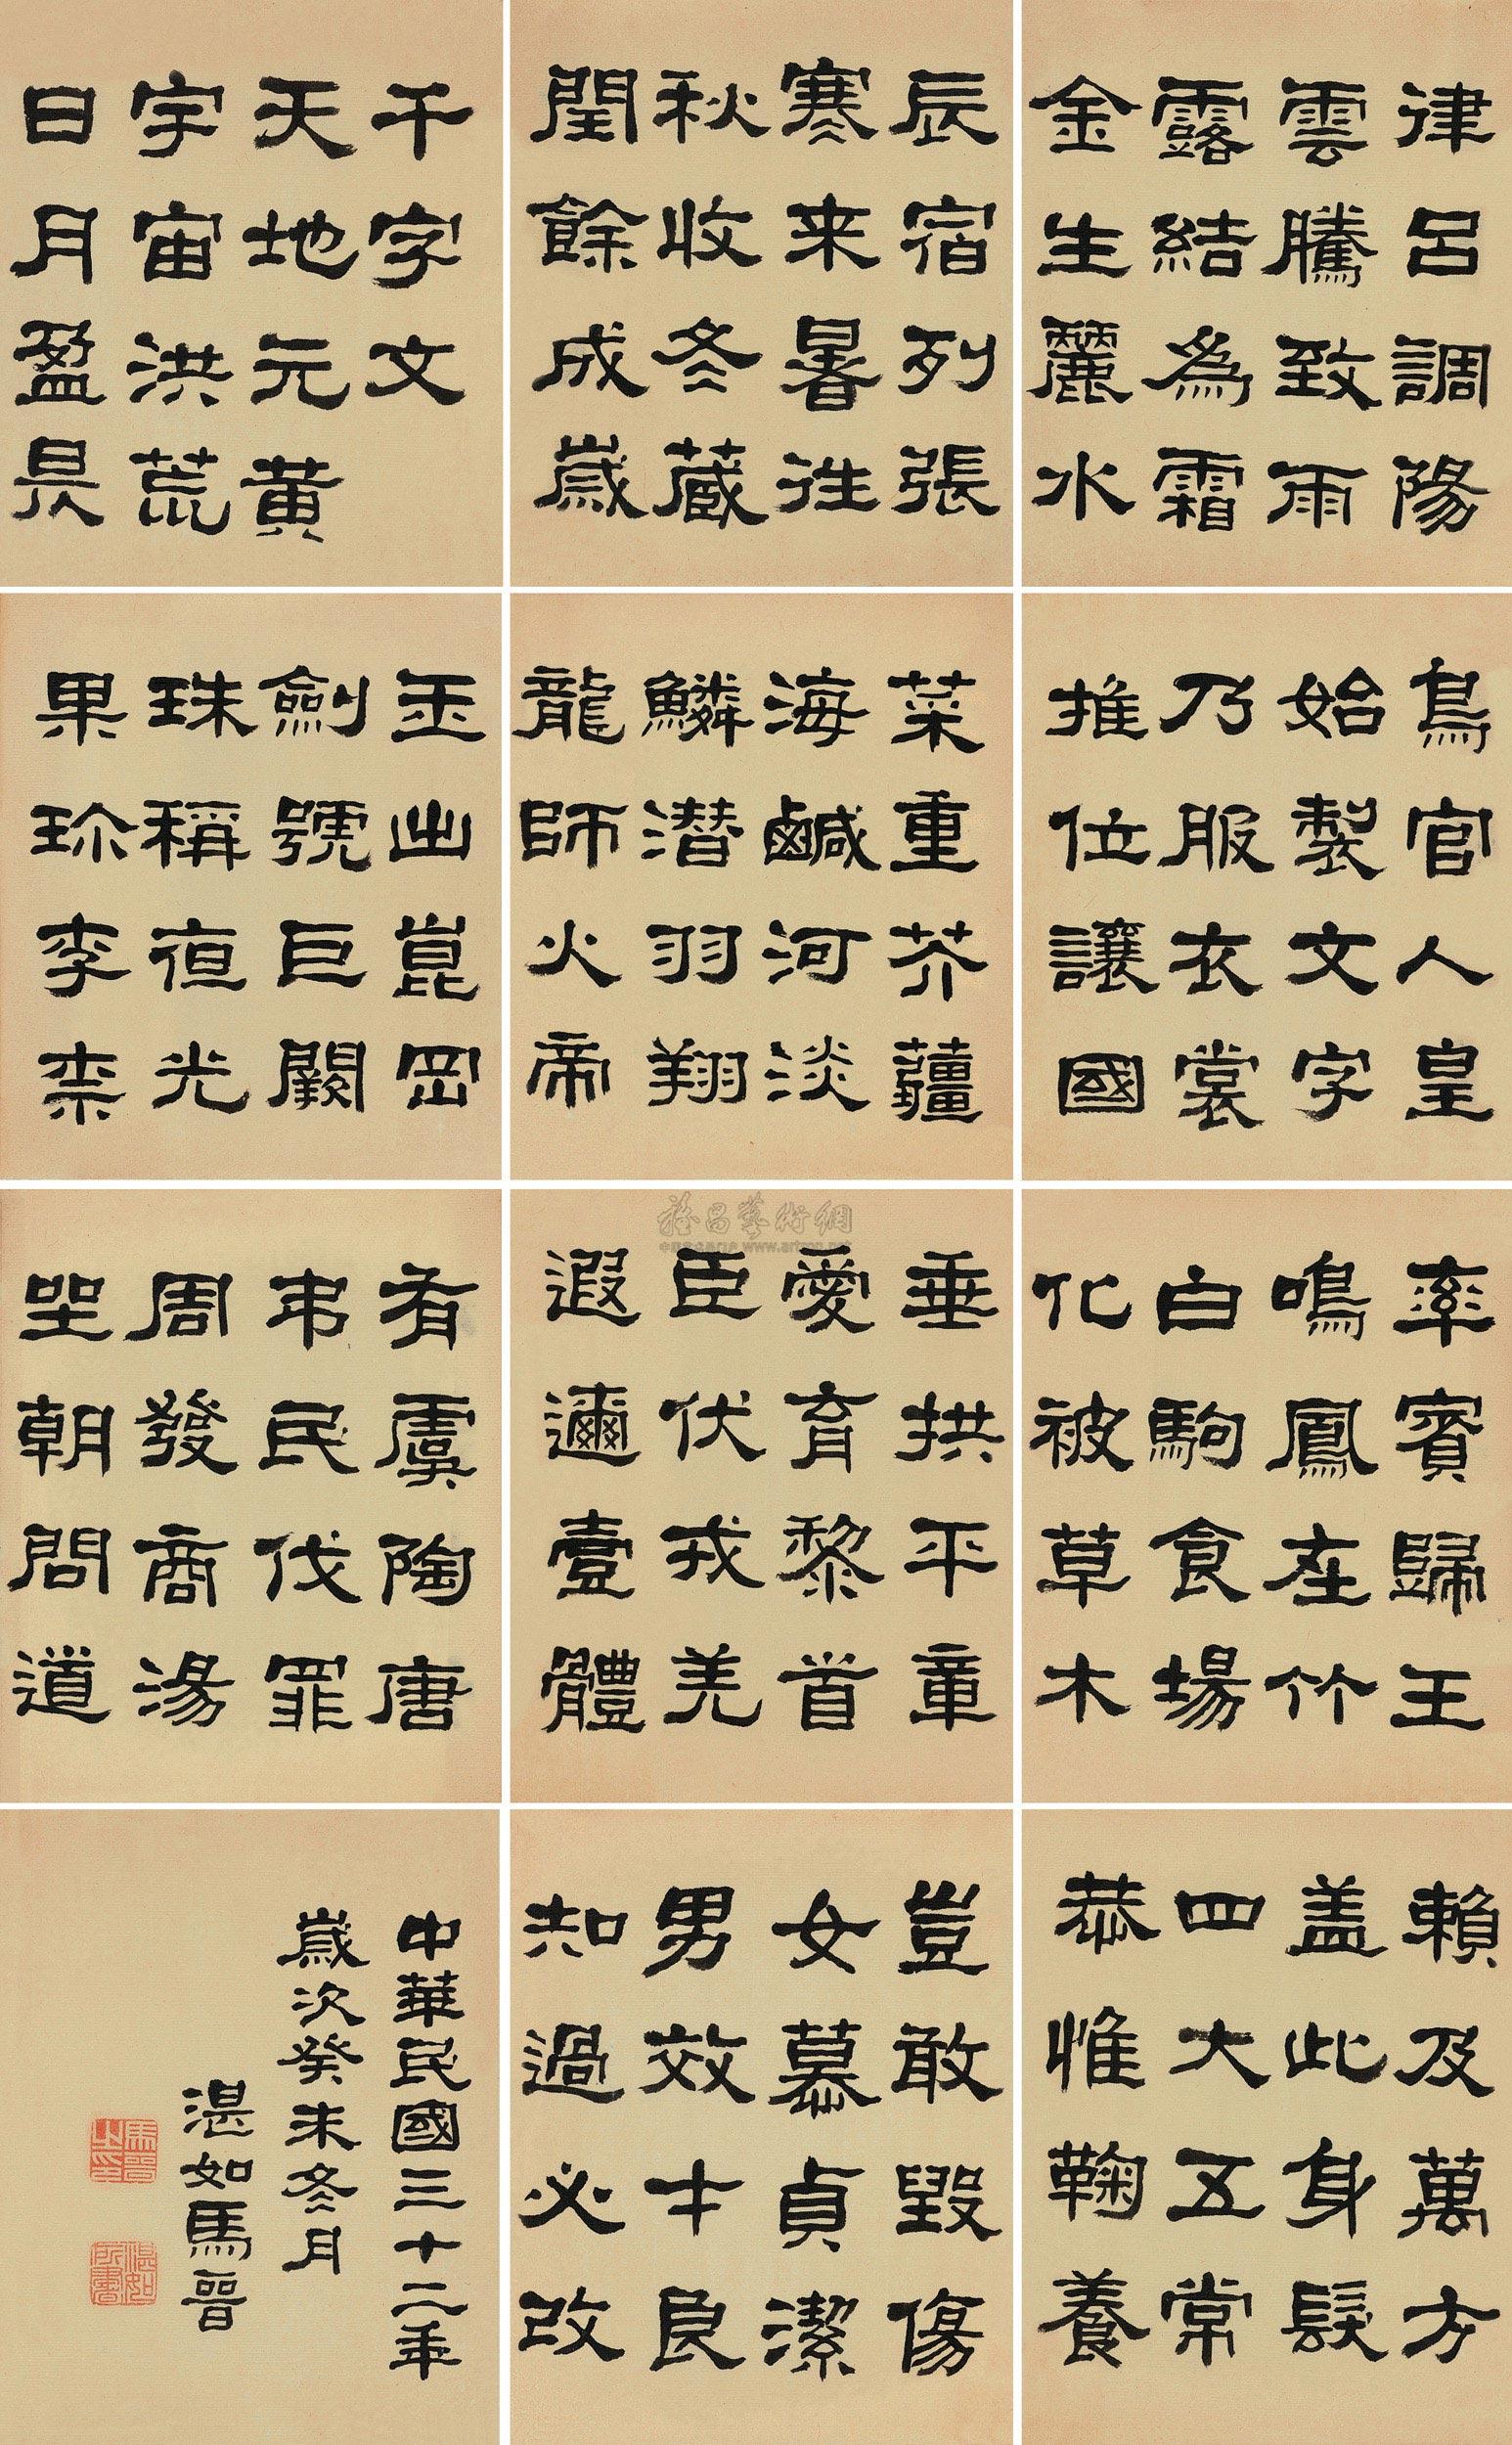 千字文
天地元黃
宇宙洪荒
日月盈昃
辰宿列張
寒来暑往
秋收冬蔵
閏餘成歲
律呂調陽
雲騰致雨
露結為霜
金生麗水
玉出崑岡
劍號巨闕
珠稱夜光
果珍李柰
菜重芥薑
海鹹河淡
鱗潛羽翔
龍師火帝
鳥官人皇
始製文字
乃服衣裳
推位讓國
有虞陶唐
弔民伐罪
周發商湯
坐朝問道
垂拱平章
愛育黎首
臣伏戎羌
遐邇壹體
率賓歸王
鳴鳳在竹
白駒食場
化被草木
賴及萬方
盖此身髮
四大五常
恭惟鞠養
豈敢毀傷
女慕貞潔
男效才良
知過必改
中華民國三十二年
歲次癸未冬月
湛如馬晉
馬晉之印
湛如所書
雅昌藝術網